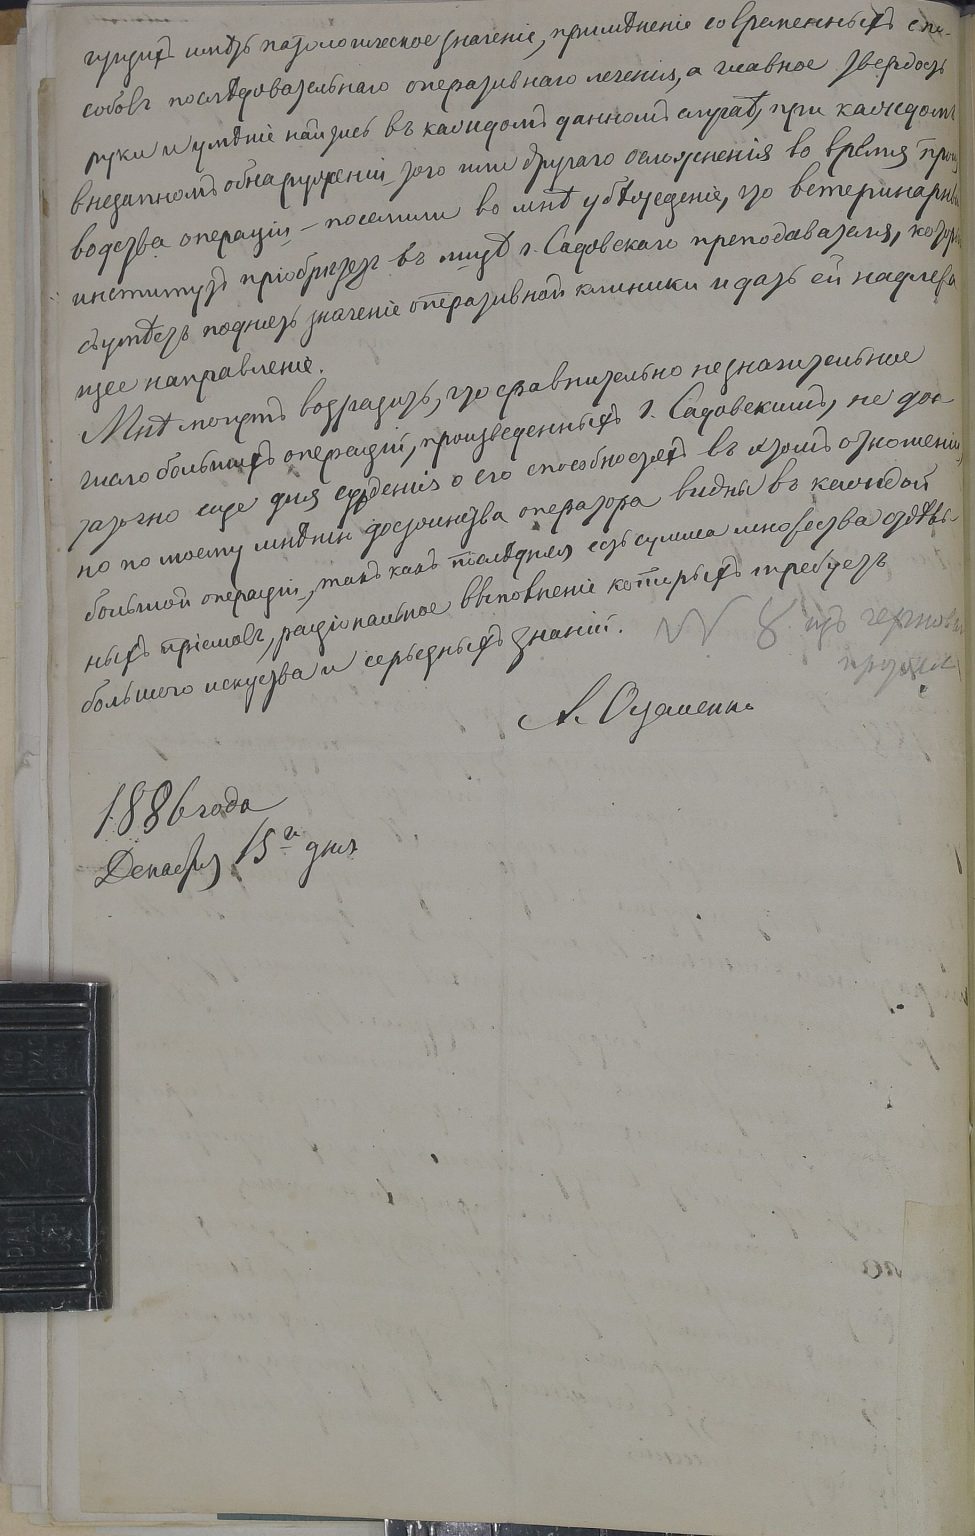 гущихъ имѣть патологическое значеніе, примѣненіе современныхъ спо-
собовъ послѣдовательнаго оперативнаго леченія, а главное твердость
руки и умѣніе найтись въ каждомъ данномъ случаѣ, при каждомъ
внезапномъ обнаруженіи того или другаго осложненія во время произ
водства операціи – поселили во мнѣ убѣжденіе, что ветеринарный
институтъ пріобрѣтетъ въ лицѣ г. Садовскаго преподавателя, который
съумѣетъ поднять значеніе оперативной клиники и дать ей надлежа
щее направленіе.
Мнѣ могутъ возразить, что сравнительно незначительное
число большихъ операцій, произведенныхъ г. Садовскимъ, не дос
таточно еще для сужденія о его способностяхъ въ этомъ отношеніи,
но по моему мнѣнію достоинства оператора видны въ каждой
большой операціи, такъ какъ послѣдняя есть сумма множества отдѣль-
ныхъ пріемовъ, раціональное выполненіе которыхъ требуетъ
большого искуства и серьезныхъ знаній.
№ 8 изъ
А. Остапенко
1886 года
Декабря 15го дня